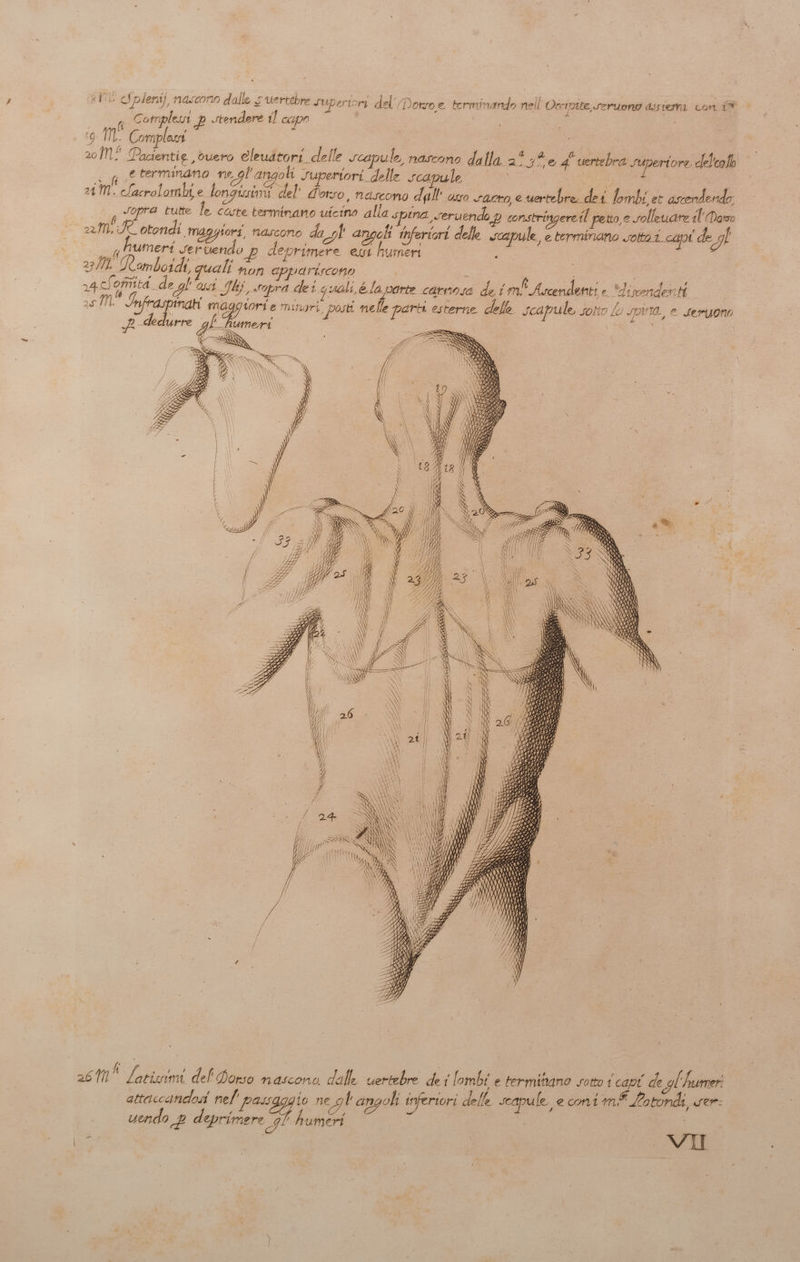 18 M.li Splenij, nascono dalle 5 uertebre superiori del Dorso e terminando nell Occipite, seruono assiemi con i M.li
Complessi p stendere il capo
19 M.li Complessi
20 M.li Pacientie, ouero eleuatori delle scapule, nascono dalla 2.a 3.a, e 4.a uertebra superiore del collo
e terminano ne gl' angoli superiori delle scapule
21 M.li Sacrolombi, e longissimi del' dorso, nascono dall' osso sacro, e uertebre de i lombi, et ascendendo,
sopra tutte le coste terminano uicino alla spina, seruendo p constringere il petto, e solleuare il Dorso
22 M.li Rotondi maggiori, nascono da gl' angoli inferiori delle scapule, e terminano sotto i capi de gl
humeri seruendo p deprimere essi humeri
23 M.li Romboidi, quali non appariscono
24 Somità de gl' ossi Ilij, sopra dei quali, è la parte carnosa de i m.li Ascendenti e discendenti
25 M.li Infraspinati maggiori e minori posti nelle parti esterne delle scapule sotto la spina, e seruono
p dedurre gl' humeri
19
18 18
20 20
33 33
25 23 23 25
22
26 26
21 21
24
26 M.li Latissimi del Dorso nascono dalle uertebre de i lombi e terminano sotto i capi de gl' humeri
attaccandosi nel' passaggio ne gl' angoli inferiori delle scapule, e con i m.li Rotondi, ser=
uendo p deprimere gl' humeri
VII